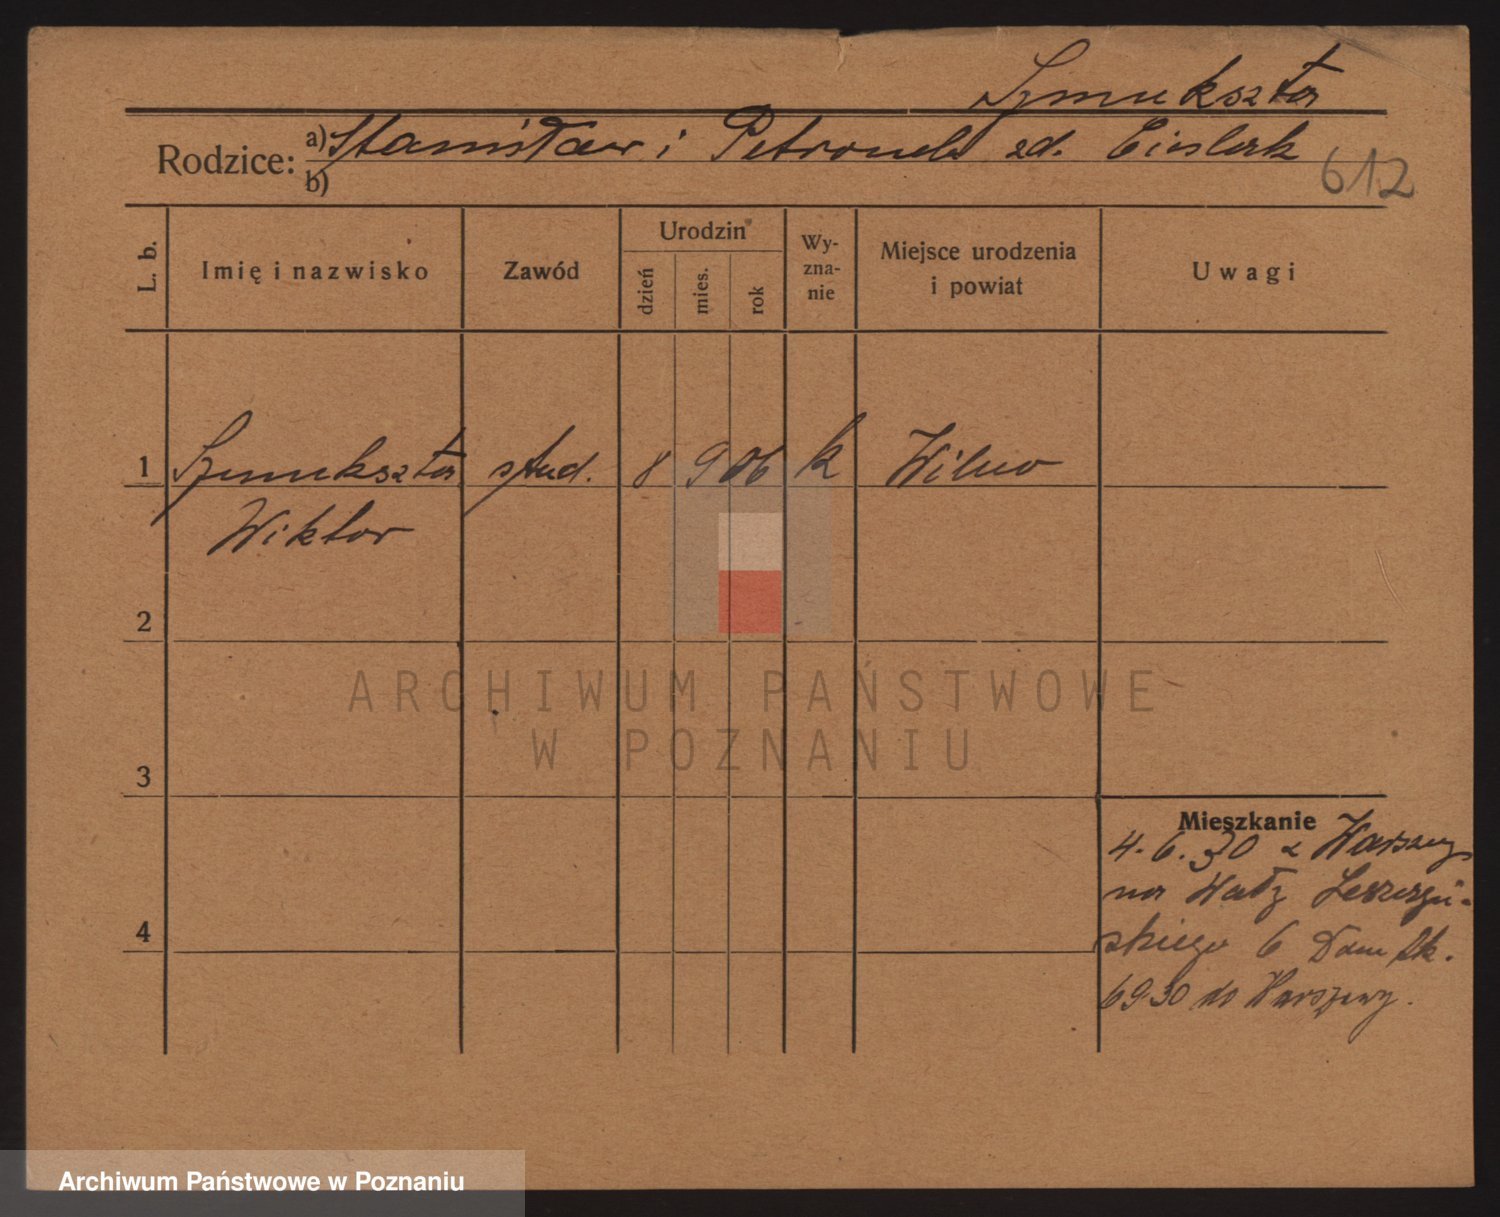 Szmukszta
Rodzice: a) Stanisław i Petronela zd.
b)
612
L. b.
Imię i nazwisko
Zawód
Urodzin
dzień
mies.
rok
Wy-
zna-
nie
Miejsce urodzenia
i powiat
Uwagi
1 Szmukszta stud. 8 9 06 k Wilno
Wiktor
2
3
4
Mieszkanie
4.6.30 z Warszawy
na Wały
skiego 6 Dom
6 9 30 do Warszawy.
ARCHIWUM PAŃSTWOWE
W POZNANIU
Archiwum Państwowe w Poznaniu